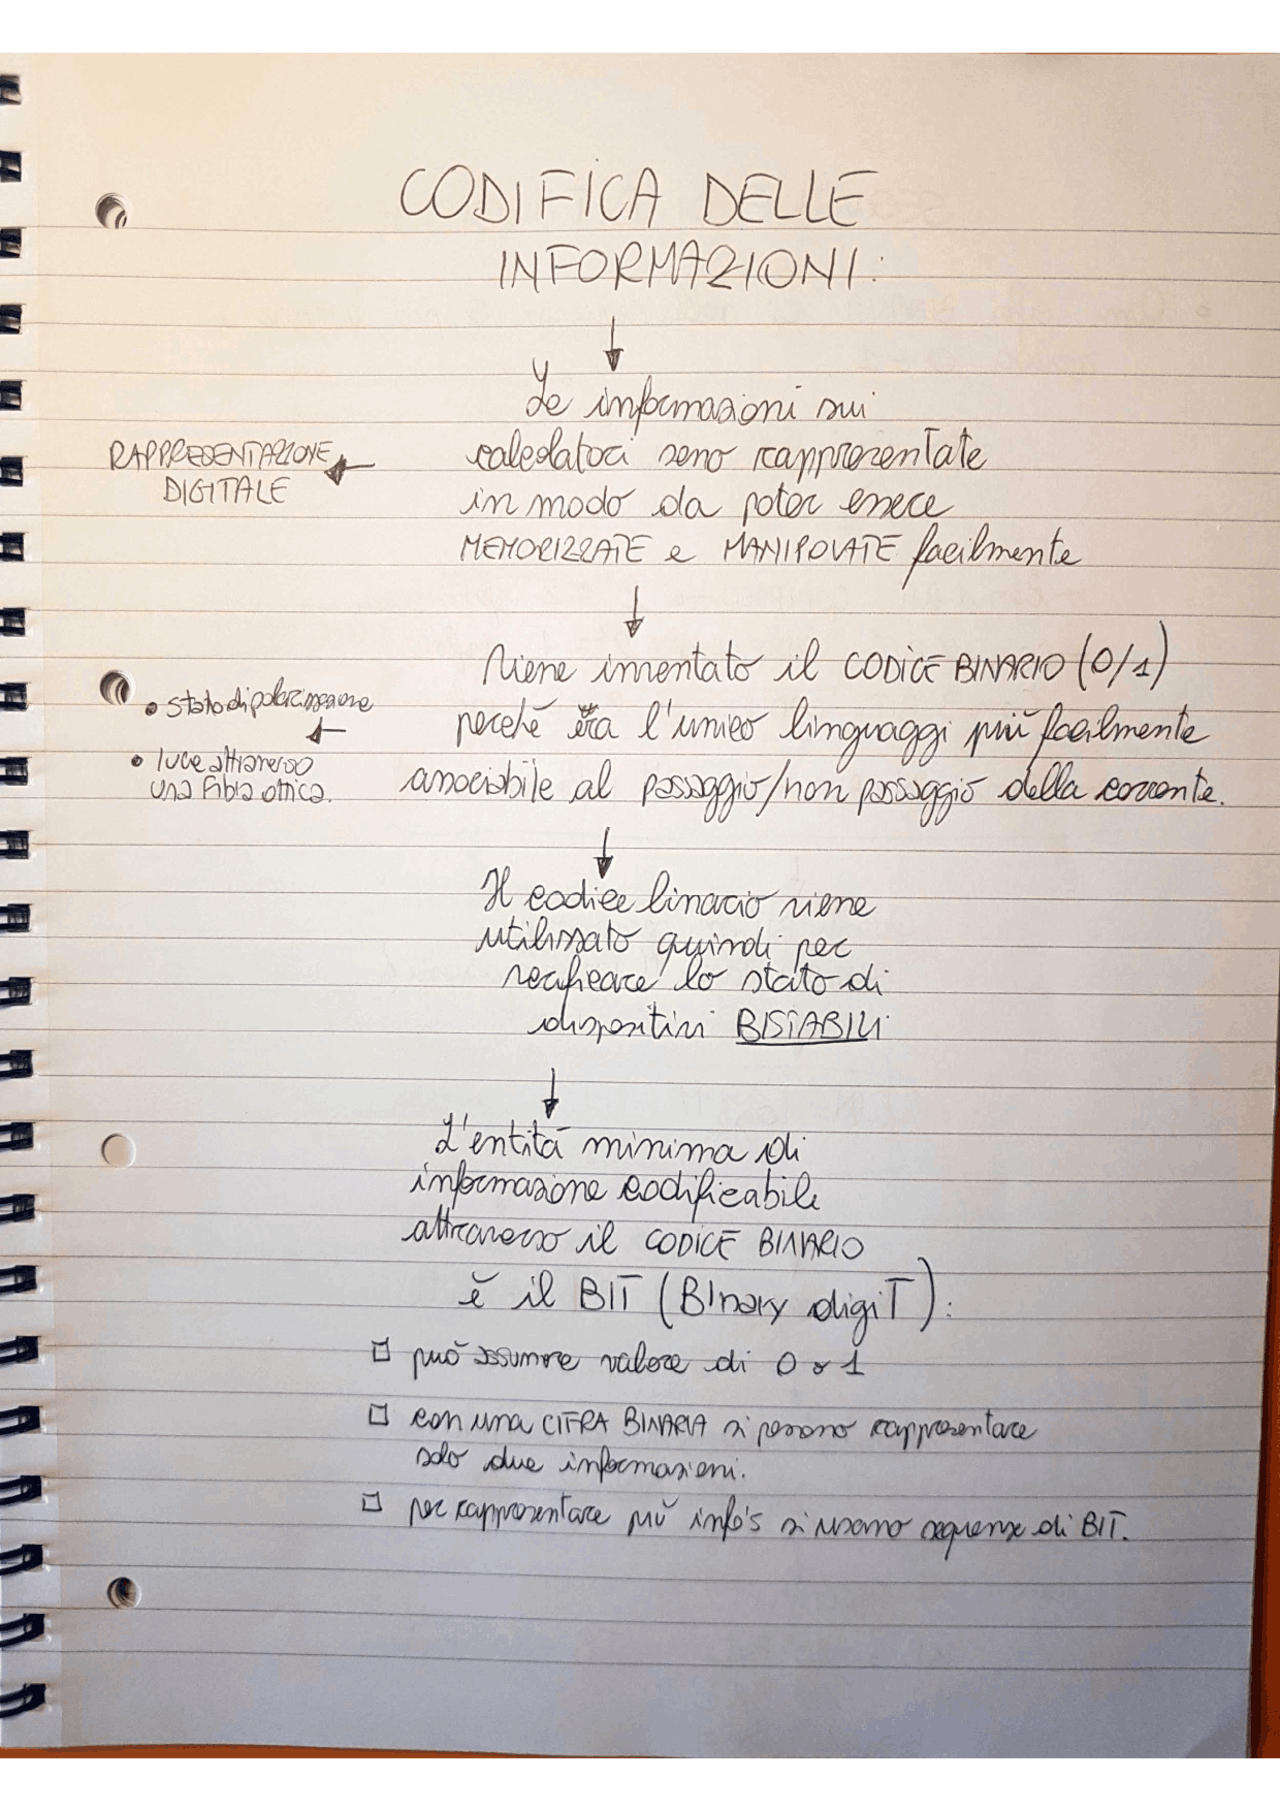 CODIFICA DELLE
INFORMAZIONI:
Le informazioni sui
calcolatori sono rappresentate
in modo da poter essere
MEMORIZZATE e MANIPOLATE facilmente
RAPPRESENTAZIONE
DIGITALE
Viene inventato il CODICE BINARIO (0/1)
perché era l'unico linguaggi più facilmente
associabile al passaggio/non passaggio della corrente.
• stato di polarizzazione
• luce attraverso
una fibra ottica.
Il codice binario viene
utilizzato quindi per
verificare lo stato di
dispositivi BISTABILI
L'entità minima di
informazione codificabile
attraverso il CODICE BINARIO
è il BIT (BInary digiT):
□ può assumere valore di 0 o 1
□ con una CIFRA BINARIA si possono rappresentare
solo due informazioni.
□ per rappresentare più info's si usano sequenze di BIT.